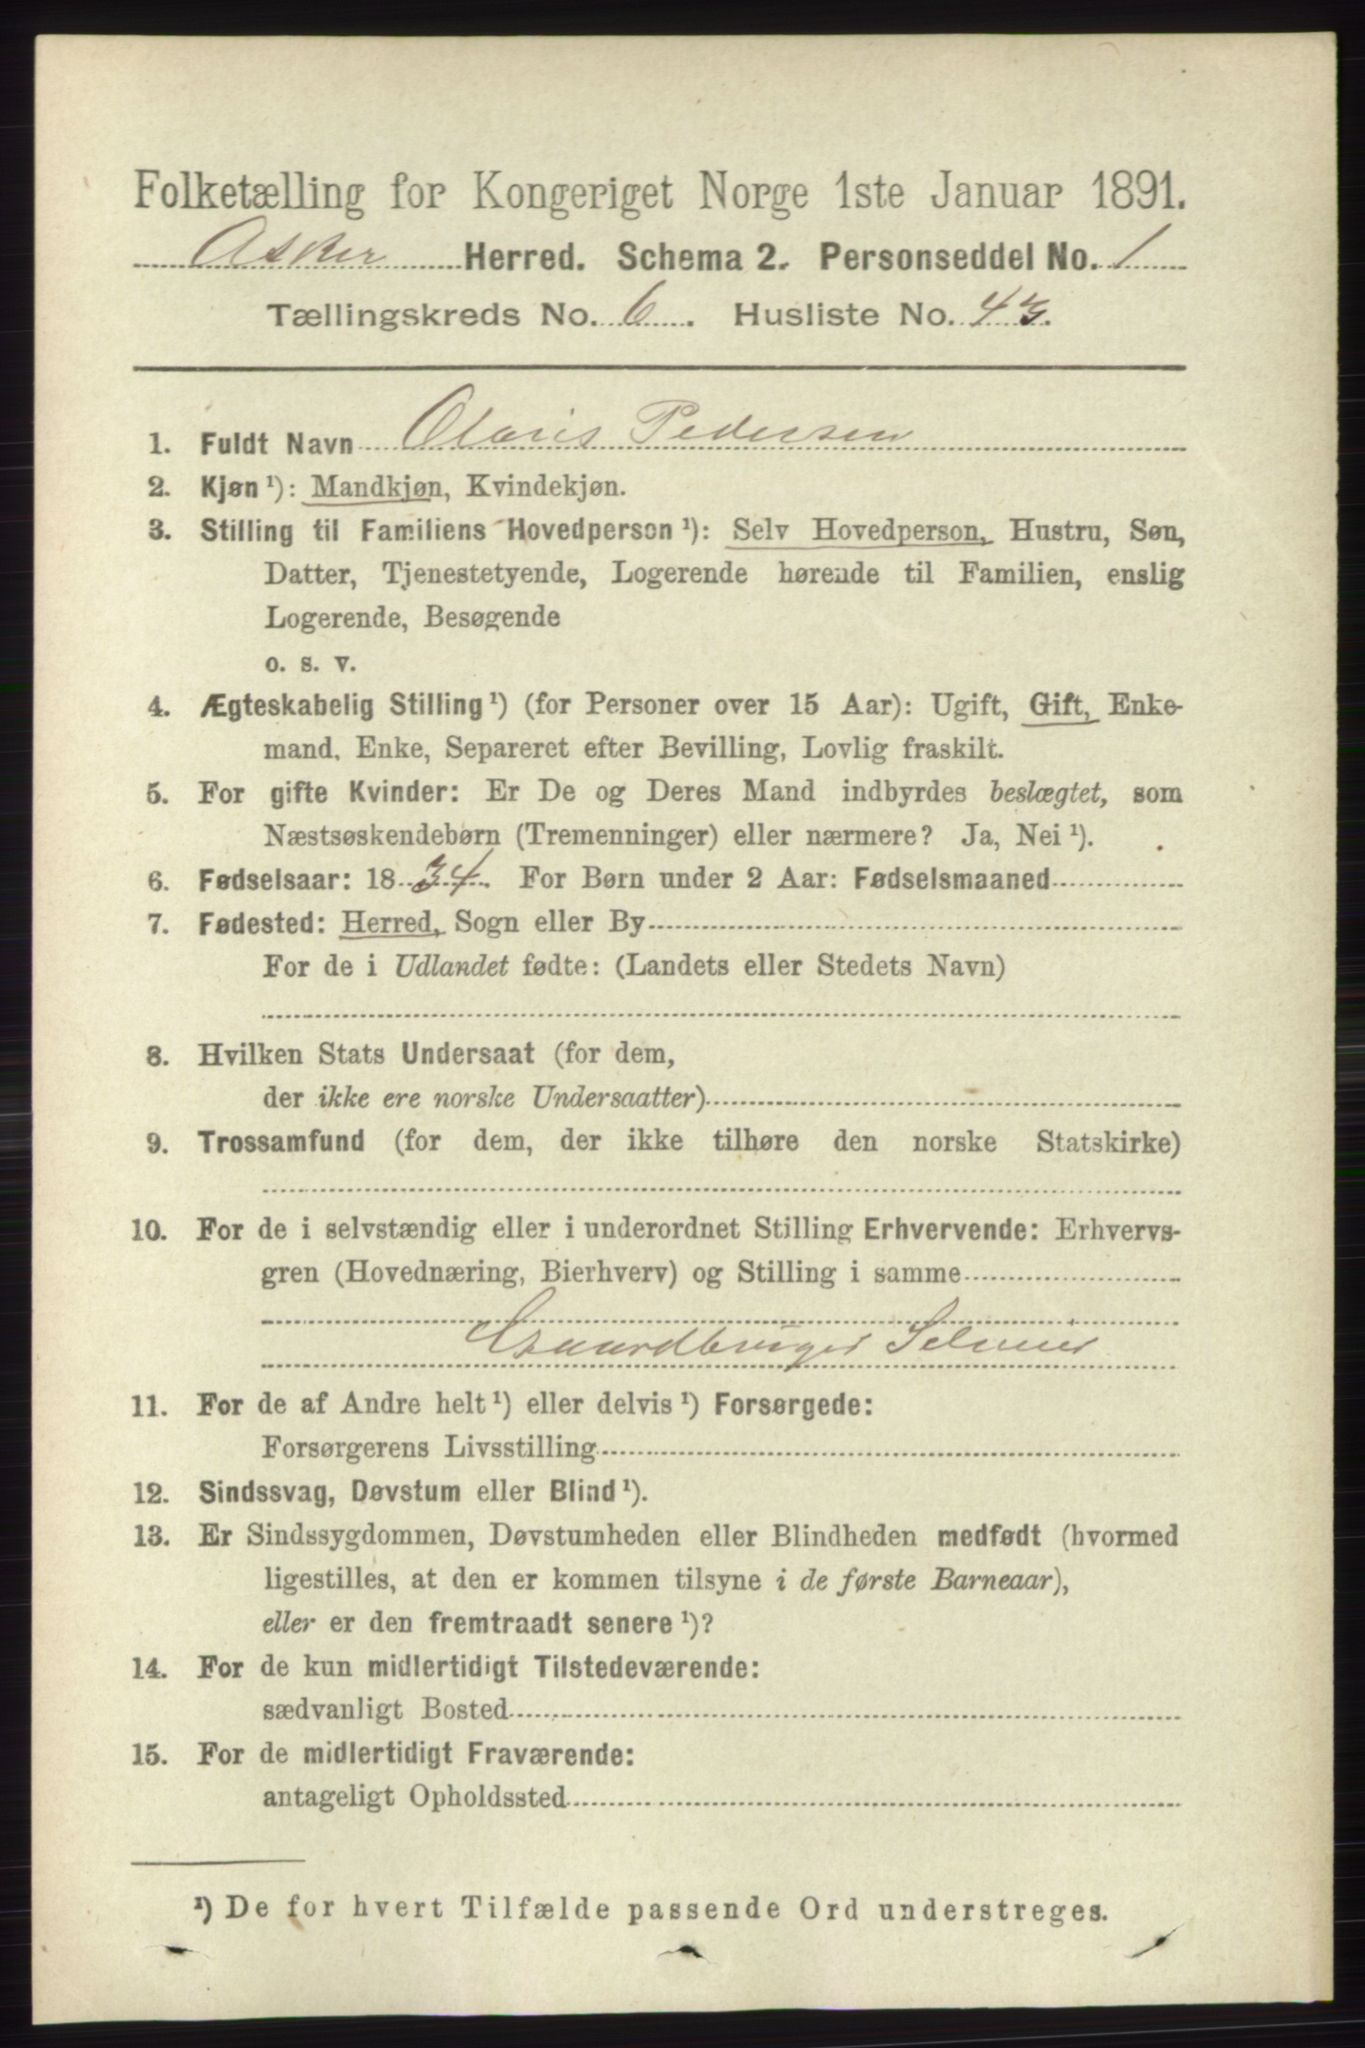 Folketælling for Kongeriget Norge 1ste Januar 1891.
Asker Herred. Schema 2. Personseddel No. 1
Tællingskreds No. 6. Husliste No. 43.
1. Fuldt Navn Olavis Pedersen
2. Kjøn ¹): Mandkjøn, Kvindekjøn.
3. Stilling til Familiens Hovedperson ¹): Selv Hovedperson, Hustru, Søn,
Datter, Tjenestetyende, Logerende hørende til Familien, enslig
Logerende, Besøgende
o. s. v.
4. Ægteskabelig Stilling ¹) (for Personer over 15 Aar): Ugift, Gift, Enke-
mand, Enke, Separeret efter Bevilling, Lovlig fraskilt.
5. For gifte Kvinder: Er De og Deres Mand indbyrdes beslægtet, som
Næstsøskendebørn (Tremenninger) eller nærmere? Ja, Nei ¹).
6. Fødselsaar: 1834. For Børn under 2 Aar: Fødselsmaaned
7. Fødested: Herred, Sogn eller By
For de i Udlandet fødte: (Landets eller Stedets Navn)
8. Hvilken Stats Undersaat (for dem,
der ikke ere norske Undersaatter)
9. Trossamfund (for dem, der ikke tilhøre den norske Statskirke)
10. For de i selvstændig eller i underordnet Stilling Erhvervende: Erhvervs-
gren (Hovednæring, Bierhverv) og Stilling i samme
Gaardbruger Seleier
11. For de af Andre helt ¹) eller delvis ¹) Forsørgede:
Forsørgerens Livsstilling
12. Sindssvag, Døvstum eller Blind ¹).
13. Er Sindssygdommen, Døvstumheden eller Blindheden medfødt (hvormed
ligestilles, at den er kommen tilsyne i de første Barneaar),
eller er den fremtraadt senere ¹)?
14. For de kun midlertidigt Tilstedeværende:
sædvanligt Bosted
15. For de midlertidigt Fraværende:
antageligt Opholdssted
¹) De for hvert Tilfælde passende Ord understreges.